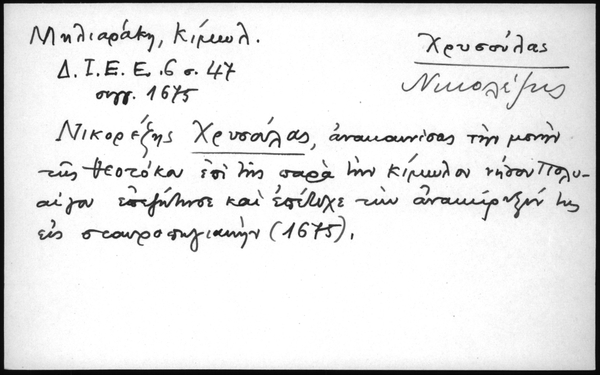 Μηλιαράκη, Κίμωλ.
Δ. Ι. Ε. Ε. 6 σ. 47
σιγγ. 1675
Χρυσούλας
Νικολέζης
Νικορέζης Χρυσούλας, ἀνακαινίσας τὴν μονὴν
τῆς Θεοτόκου ἐπὶ τῆς παρὰ τὴν Κίμωλον νήσου Πολυ-
αίγου ἐπεζήτησε καὶ ἐπέτυχε τὴν ἀνακήρυξίν της
εἰς σταυροπηγιακήν (1675).